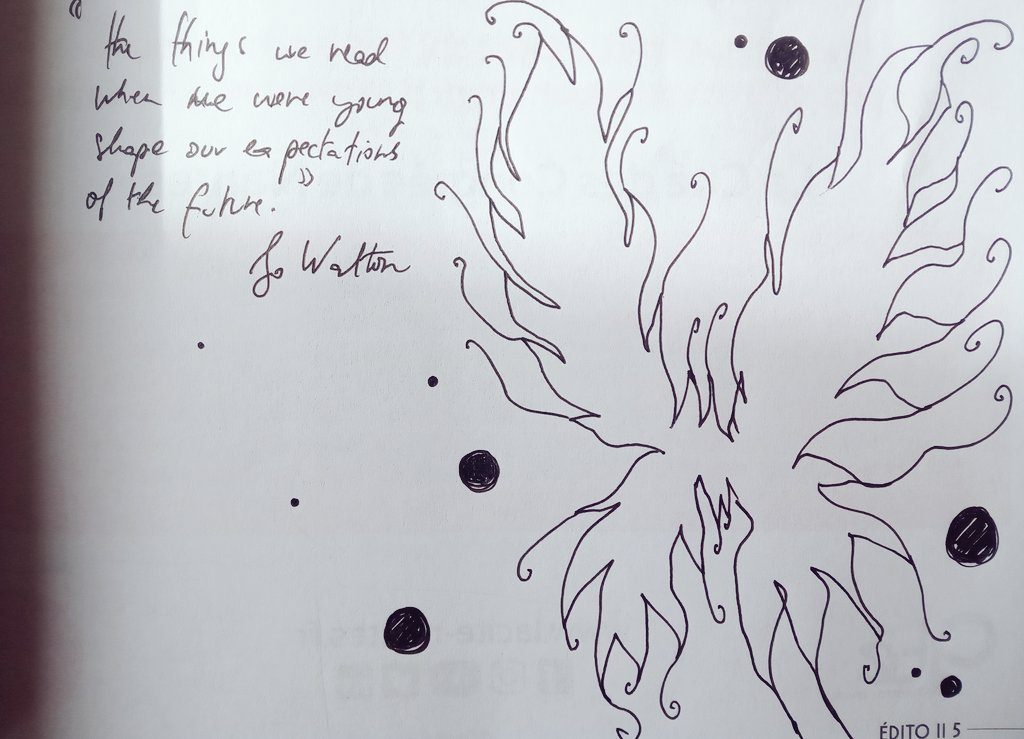 "the things we read
when we were young
shape our expectations
of the future."
Jo Walton
ÉDITO II 5